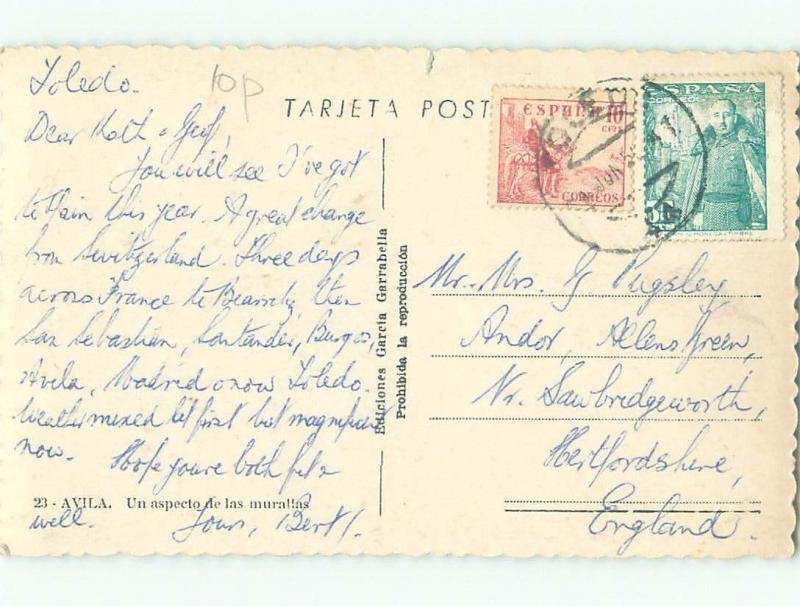 Toledo.
10p
TARJETA POST
ESPAÑA
10
CTS
CORREOS
ESPAÑA
CORREOS
50
Dear Kath & Geoff,
You will see I've got
to Spain this year. A great change
from Switzerland. Three days
across France to Biarritz then
San Sebastian, Santander, Burgos,
Avila, Madrid & now Toledo.
Weather mixed at first but magnificent
now. Hope you're both fit &
23 - AVILA. Un aspecto de las murallas
well. Yours, Bert.
Ediciones García Garrabella
Prohibida la reproducción
Mr. Mrs. G Pugsley
Andor, Allens Green,
Nr. Sawbridgeworth,
Hertfordshire,
England.